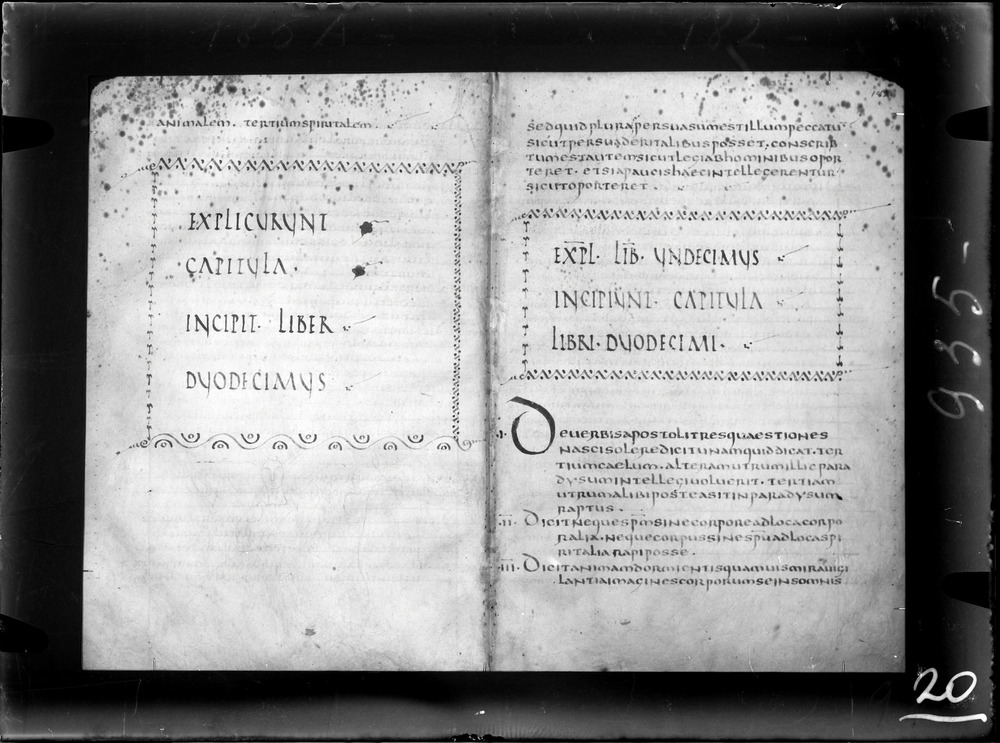 animalem. tertium spiritalem.
EXPLICURUNT
CAPITULA.
INCIPIT. LIBER
DUODECIMUS
sed quid plura persuasum est illum peccatu
sicut persuaderi talibus posset, conscrip
tum est autem sicut legi ab hominibus opor
teret. etsi a paucis haec intellegerentur
sicut oporteret.
EXPL. LIB. UNDECIMUS
INCIPIUNT. CAPITULA
LIBRI. DUODECIMI.
I. De verbis apostoli tres quaestiones
nasci solere dicit unam quid dicat. ter
tium caelum. alteram utrum illic para
dysum intellegi voluerit. tertiam
utrum alibi postea sit in paradysum
raptus.
II. Dicit neque spm sine corpore ad loca corpo
ralia. neque corpus sine spu ad loca spi
ritalia rapi posse.
III. Dicit animam dormientis quamvis mira vigi
lantia imagines corporum se in somnis
935-
20